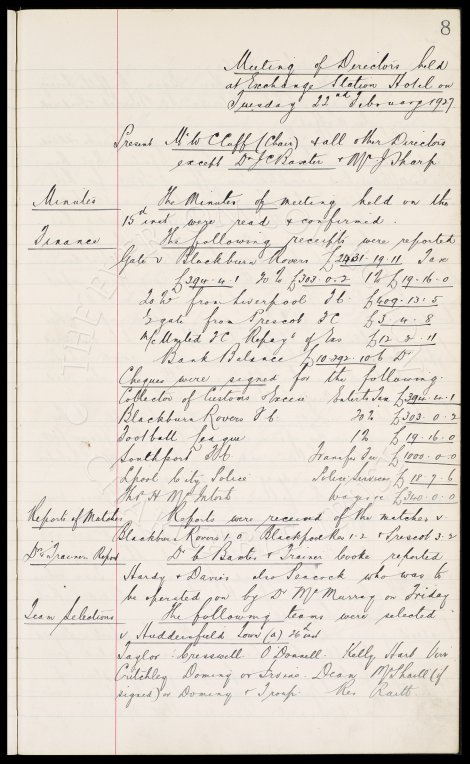 8
Meeting of Directors held
at Exchange Station Hotel on
Tuesday 22nd February 1927
Present Mr W C Cuff (Chair) & all other Directors
except Dr J C Baxter & Mr J Sharp
Minutes The Minutes of meeting held on the
15th inst were read & confirmed.
Finance The following receipts were reported
Gate v Blackburn Rovers £2431-19-11 Tax
£394-4-1 20% £303-0-2 1% £19-16-0
20% from Liverpool FC. £409-13-5
½ gate from Prescot FC £3-4-8
Bank Balance £10,392-10-6 Dr
Cheques were signed for the following
Collector of Customs & Excise Enterts Tax £394-4-1
Blackburn Rovers FC. 20% £303-0-2
Football League 1% £19-16-0
Southport FC Transfer Fee £1000-0-0
Lpool City Police Police Services £18-7-6
Thos H McIntosh wages £340-0-0
Reports of Matches Reports were received of the matches v
Blackburn Rovers 1-0 Blackpool Res 1-2 & Prescot 3-2
Dr & Trainers Report Dr Baxter & Trainer Cooke reported
Hardy & Davies also Peacock who was to
be operated on by Dr McMurray on Friday
Team Selections The following teams were selected
v Huddersfield Town (a) 26th inst
Taylor: Cresswell. O'Donnell. Kelly Hart Virr
Critchley Dominy or Irvine. Dean. (if
signed) or Dominy & Troup. Res Raitt